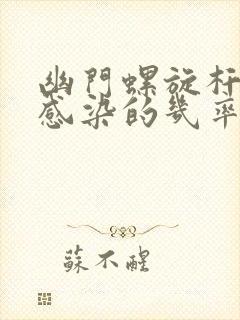 幽門螺旋杆
感染的幾率
蘇不醒